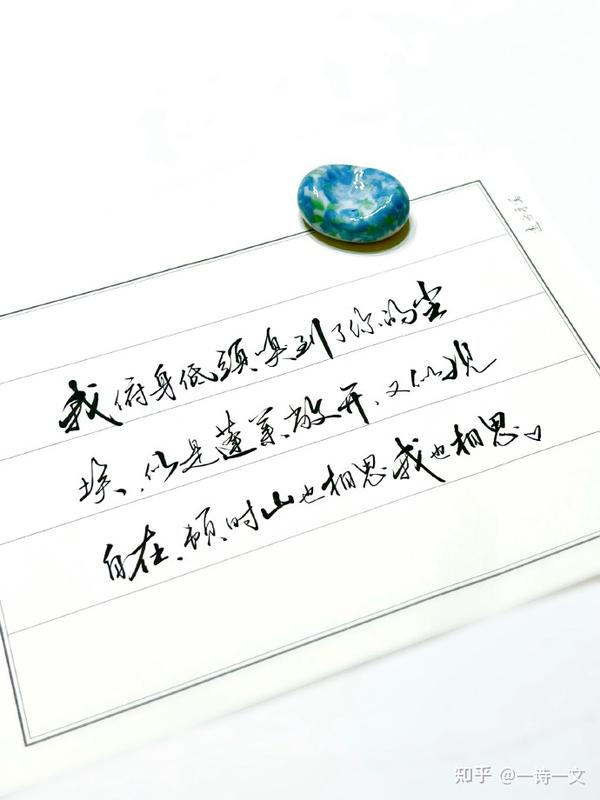 我俯身低頭嗅到了你的尘
埃、似是蓬莱放开、又似观
自在、顿时山也相思我也相思。
知乎 @一诗一文